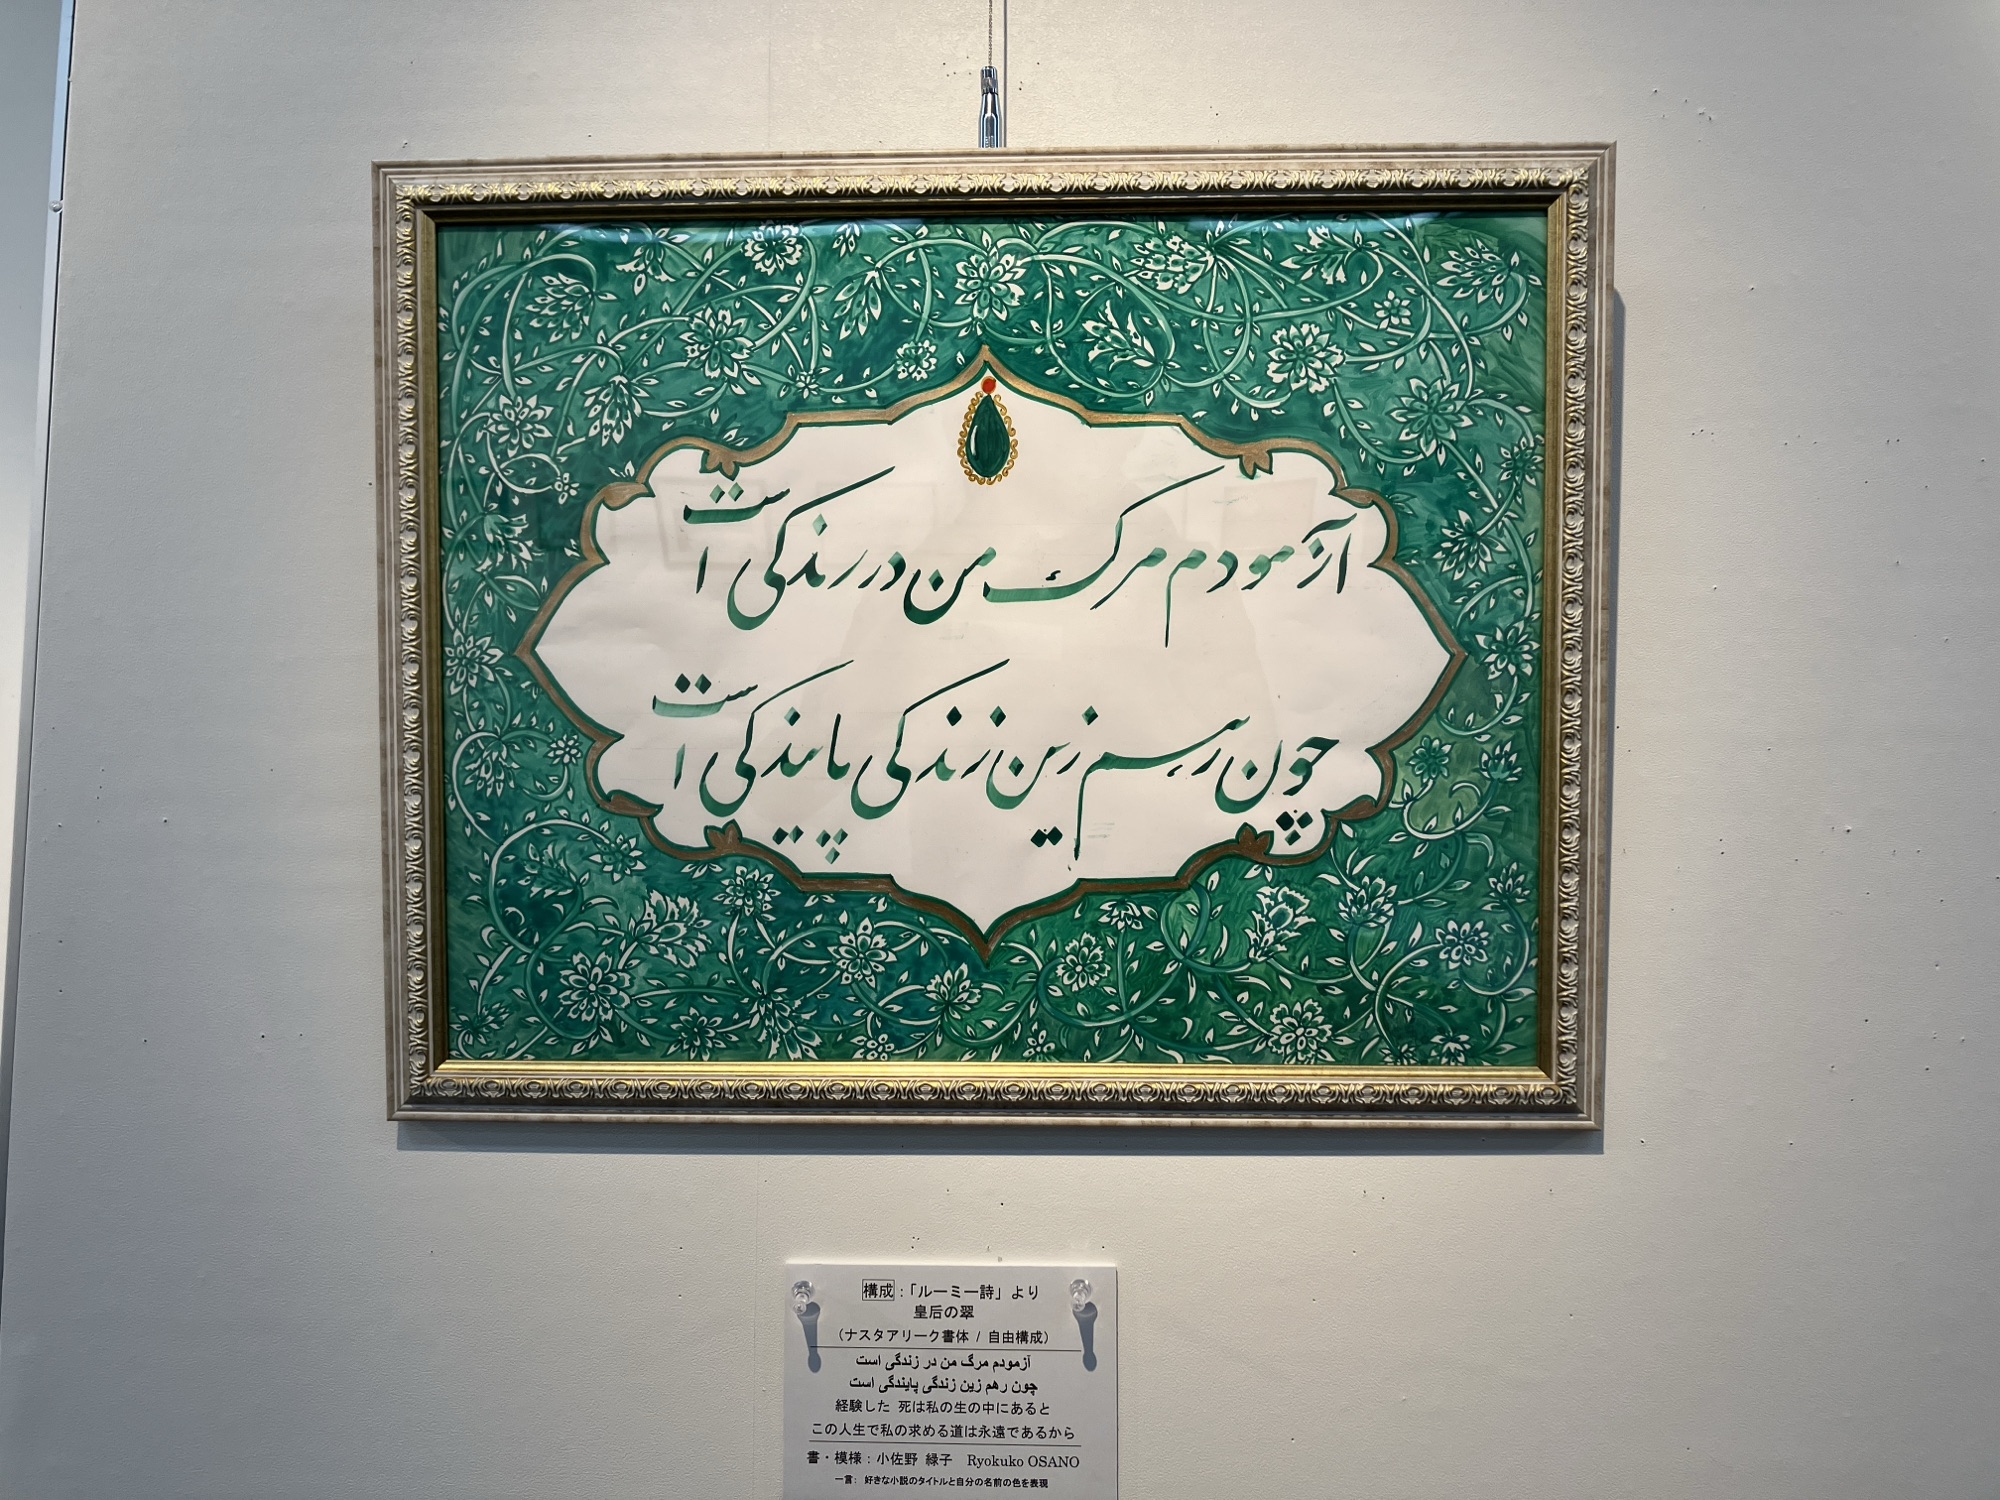 آزمودم مرگ من در زندگی است
چون رهم زین زندگی پایندگی است
構成：「ルーミー詩」より
皇后の翠
（ナスタアリーク書体 / 自由構成）
آزمودم مرگ من در زندگی است
چون رهم زین زندگی پایندگی است
経験した 死は私の生の中にあると
この人生で私の求める道は永遠であるから
書・模様：小佐野 緑子 Ryokuko OSANO
一言： 好きな小説のタイトルと自分の名前の色を表現